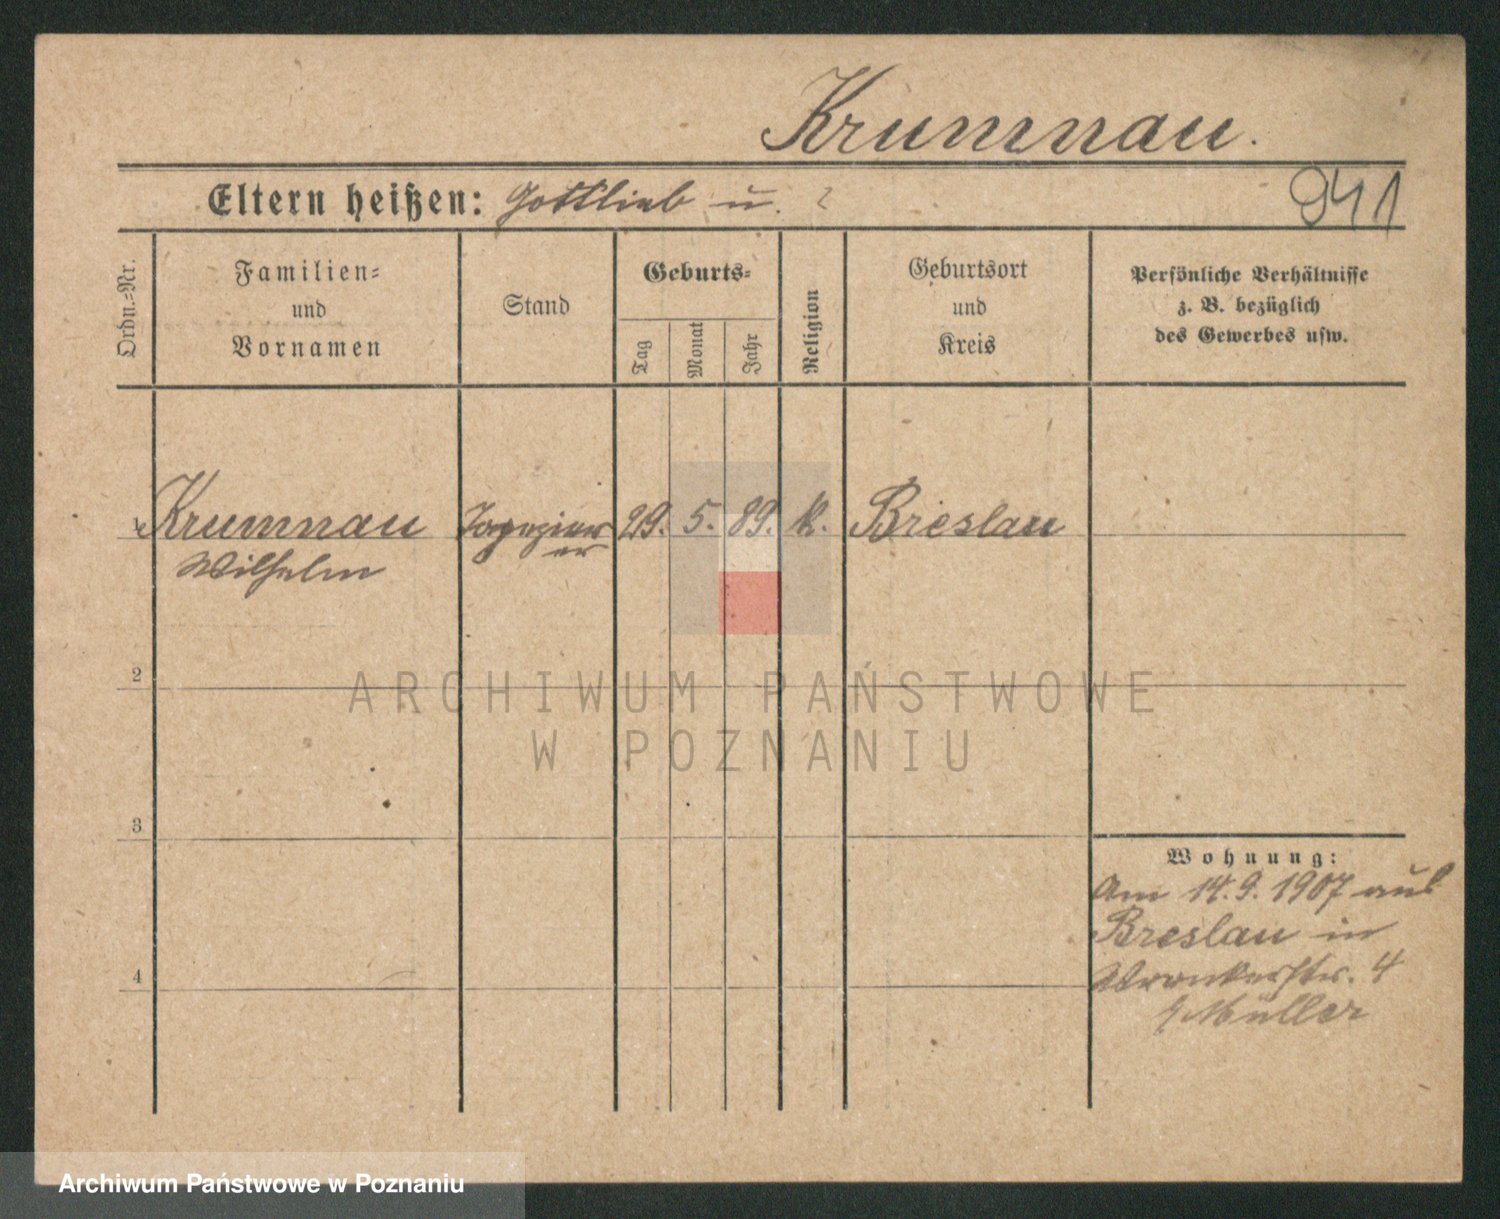 Krumnau.
Eltern heißen: Gottlieb u. ?
941
Ordn.=Nr.
Familien=
und
Vornamen
Stand
Geburts=
Tag
Monat
Jahr
Religion
Geburtsort
und
Kreis
Persönliche Verhältnisse
z. B. bezüglich
des Gewerbes usw.
Krumnau Tapezier 29. 5. 89. k. Breslau
er
Wilhelm
2
ARCHIWUM PAŃSTWOWE
W POZNANIU
3
Wohnung:
Am 14.9.1907 aus
Breslau in
4
Wronkerstr. 4
Müller
Archiwum Państwowe w Poznaniu